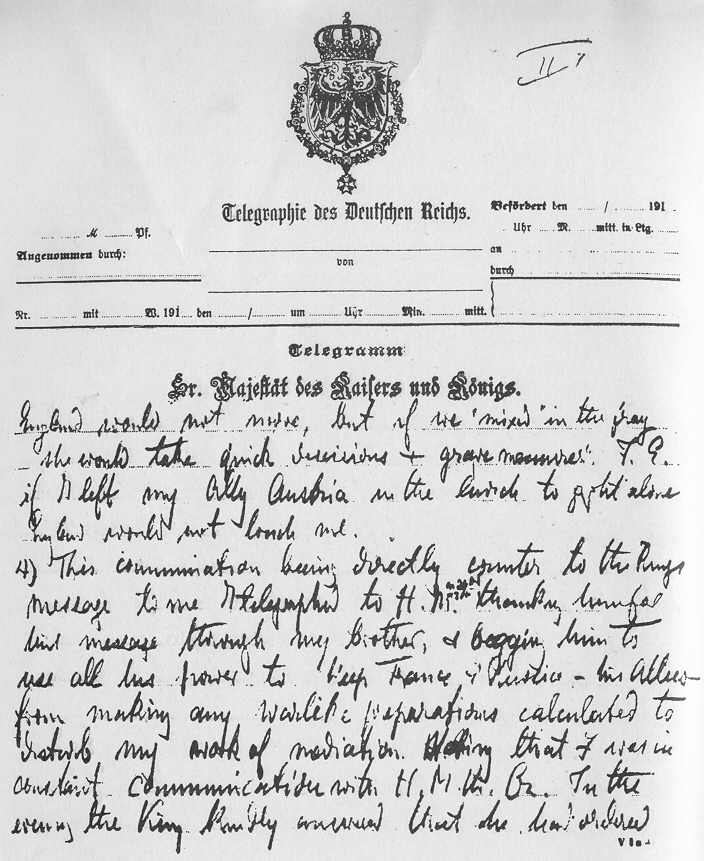 II
Telegraphie des Deutschen Reichs.
Befördert den / 191
M Pf.
Uhr M. mitt. in Ltg.
Angenommen durch:
von
an
durch
Nr. mit W. 191 den / um Uhr Min. mitt.
Telegramm
Sr. Majestät des Kaisers und Königs.
England would not move, but if we "mixed" in the fray
- she would take quick decisions + grave measures". I. E.
if I left my Ally Austria in the lurch to fight alone
England would not touch me.
4) This communication being directly counter to the Kings
message to me I telegraphed to H. M. thanking him for
his message through my brother, & begging him to
use all his power to keep France & Russia - his Allies -
from making any warlike preparations calculated to
disturb my work of mediation. that I was in
constant communication with H. M. In the
evening the King kindly answered that he had ordered